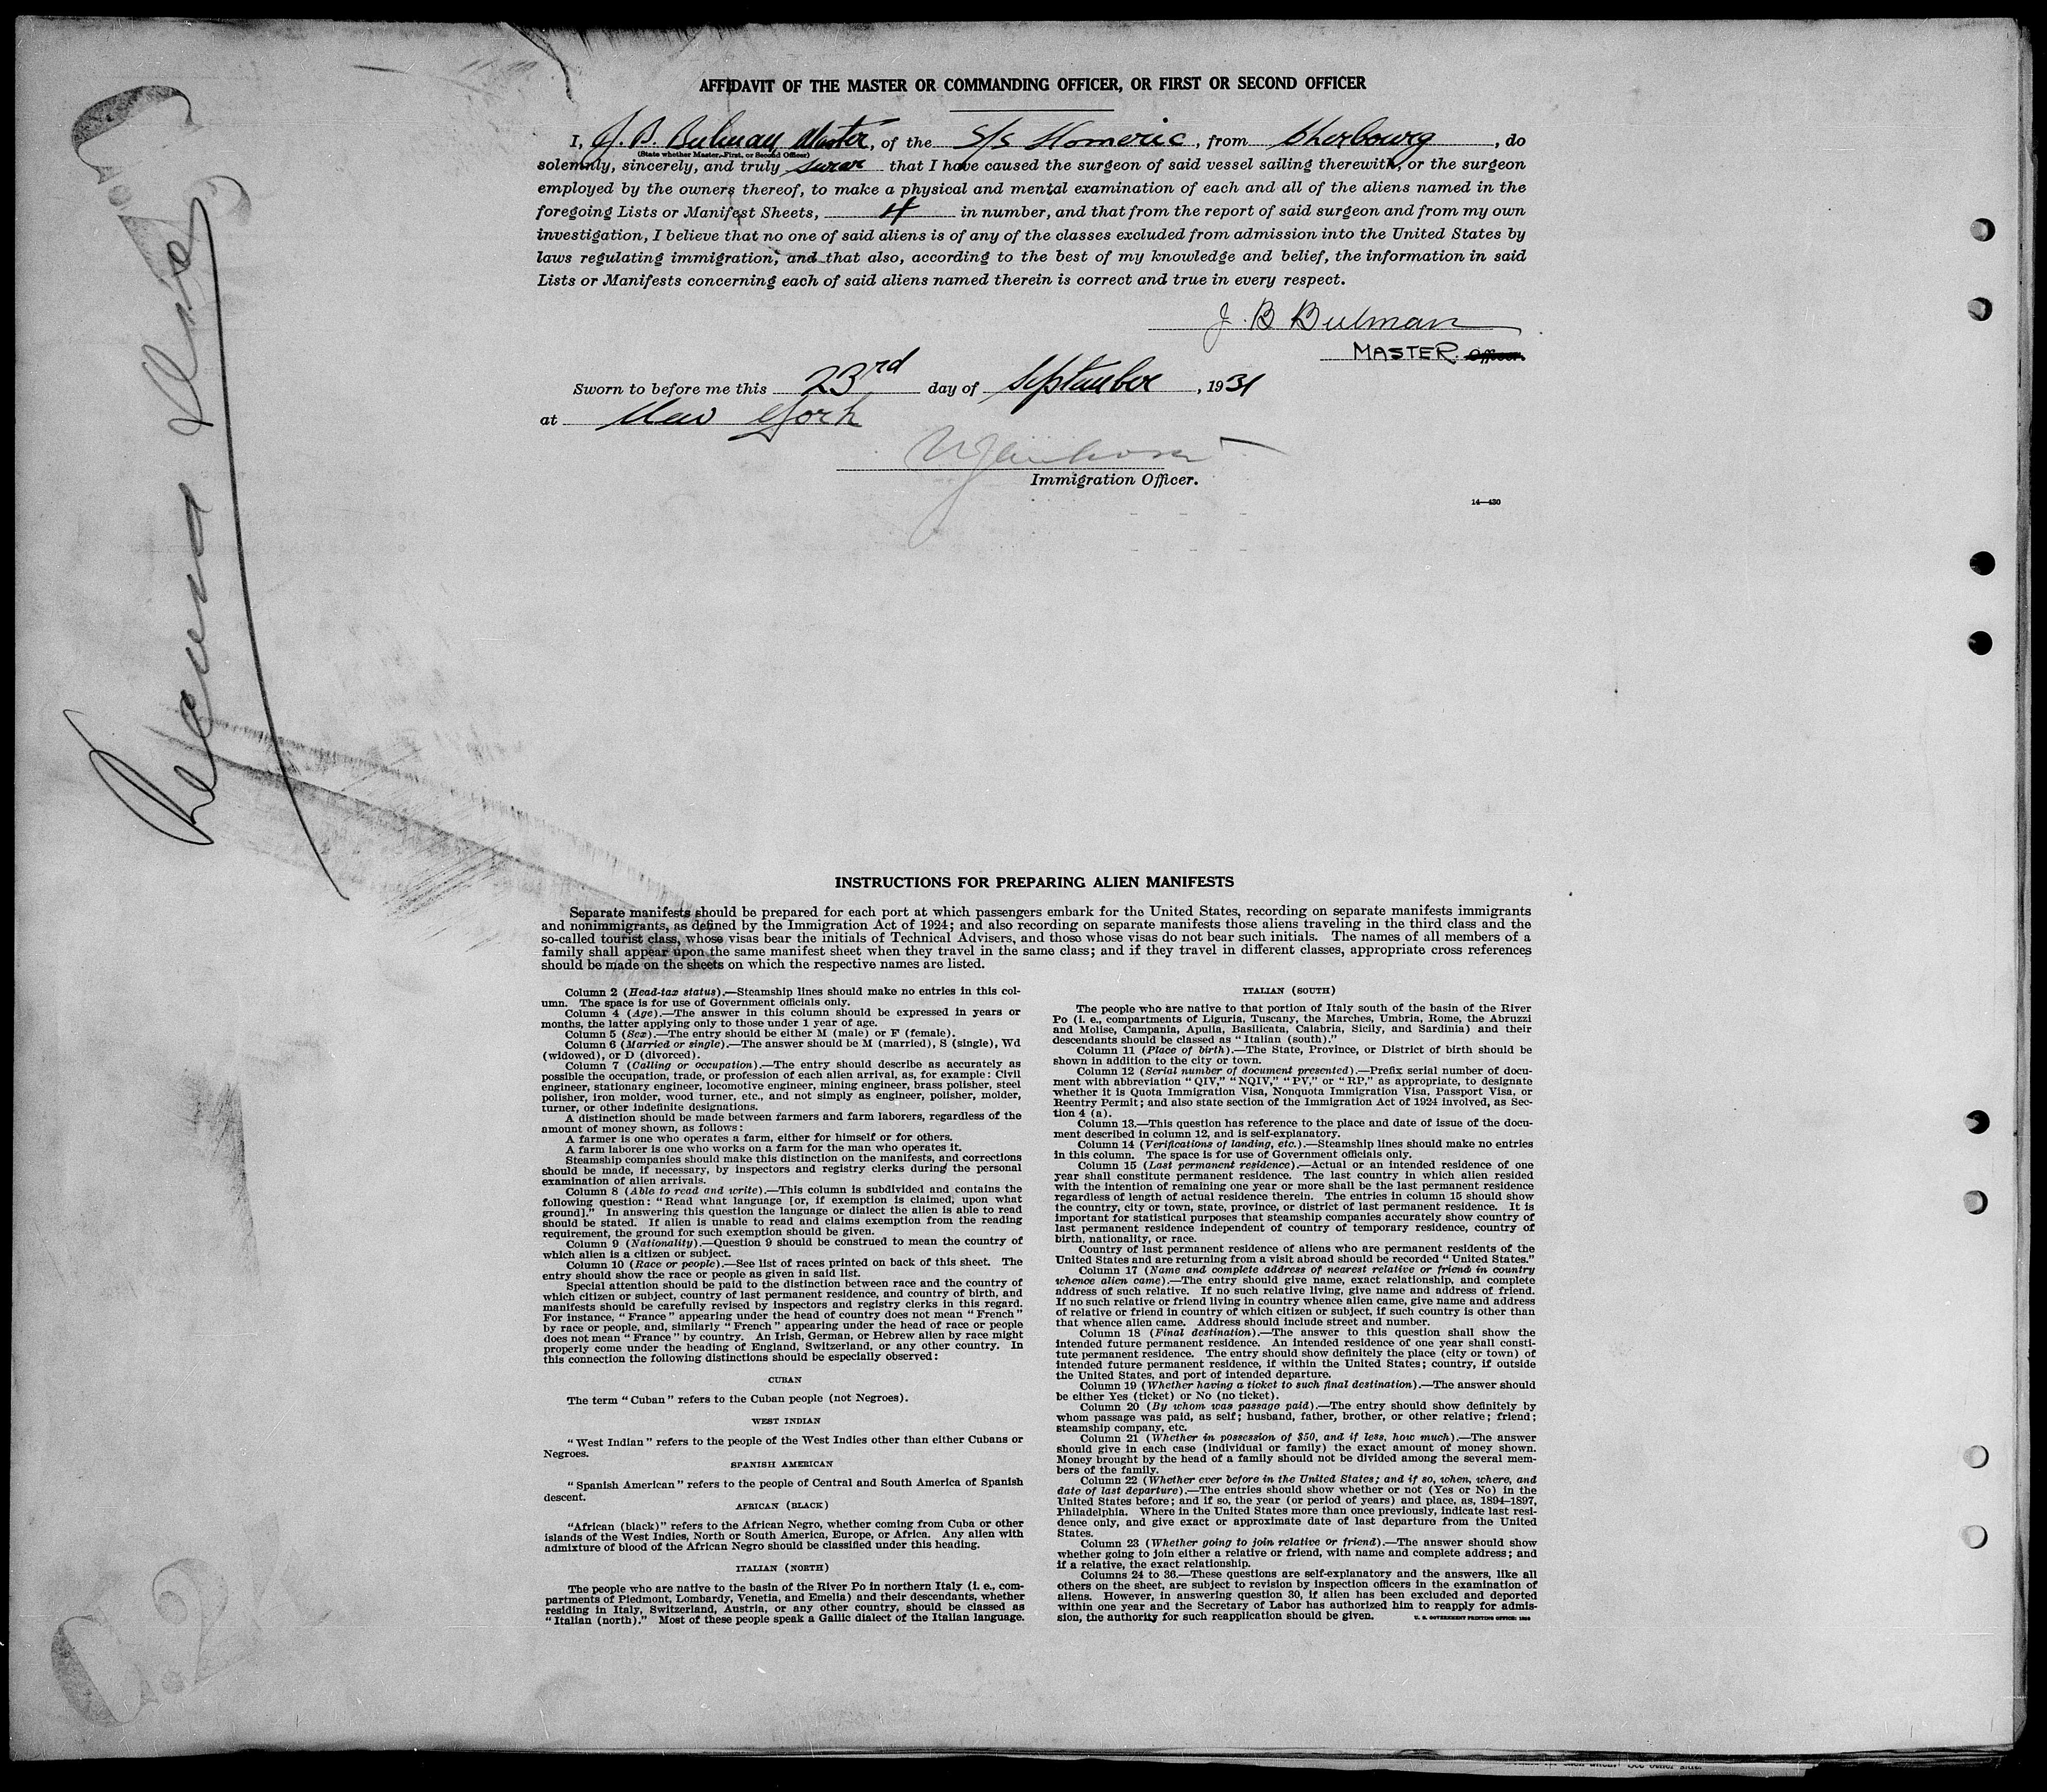 AFFIDAVIT OF THE MASTER OR COMMANDING OFFICER, OR FIRST OR SECOND OFFICER
I, J. B. Bulman Master, of the S/S Homeric, from Cherbourg, do
(State whether Master, First, or Second Officer)
solemnly, sincerely, and truly swear that I have caused the surgeon of said vessel sailing therewith, or the surgeon
employed by the owners thereof, to make a physical and mental examination of each and all of the aliens named in the
foregoing Lists or Manifest Sheets, 4 in number, and that from the report of said surgeon and from my own
investigation, I believe that no one of said aliens is of any of the classes excluded from admission into the United States by
laws regulating immigration, and that also, according to the best of my knowledge and belief, the information in said
Lists or Manifests concerning each of said aliens named therein is correct and true in every respect.
J. B Bulman
MASTER. Officer.
Sworn to before me this 23rd day of September, 1931
at New York
Immigration Officer.
14—430
INSTRUCTIONS FOR PREPARING ALIEN MANIFESTS
Separate manifests should be prepared for each port at which passengers embark for the United States, recording on separate manifests immigrants
and nonimmigrants, as defined by the Immigration Act of 1924; and also recording on separate manifests those aliens traveling in the third class and the
so-called tourist class, whose visas bear the initials of Technical Advisers, and those whose visas do not bear such initials. The names of all members of a
family shall appear upon the same manifest sheet when they travel in the same class; and if they travel in different classes, appropriate cross references
should be made on the sheets on which the respective names are listed.
Column 2 (Head-tax status).—Steamship lines should make no entries in this col-
umn. The space is for use of Government officials only.
Column 4 (Age).—The answer in this column should be expressed in years or
months, the latter applying only to those under 1 year of age.
Column 5 (Sex).—The entry should be either M (male) or F (female).
Column 6 (Married or single).—The answer should be M (married), S (single), Wd
(widowed), or D (divorced).
Column 7 (Calling or occupation).—The entry should describe as accurately as
possible the occupation, trade, or profession of each alien arrival, as, for example: Civil
engineer, stationary engineer, locomotive engineer, mining engineer, brass polisher, steel
polisher, iron molder, wood turner, etc., and not simply as engineer, polisher, molder,
turner, or other indefinite designations.
A distinction should be made between farmers and farm laborers, regardless of the
amount of money shown, as follows:
A farmer is one who operates a farm, either for himself or for others.
A farm laborer is one who works on a farm for the man who operates it.
Steamship companies should make this distinction on the manifests, and corrections
should be made, if necessary, by inspectors and registry clerks during the personal
examination of alien arrivals.
Column 8 (Able to read and write).—This column is subdivided and contains the
following question: "Read what language [or, if exemption is claimed, upon what
ground]." In answering this question the language or dialect the alien is able to read
should be stated. If alien is unable to read and claims exemption from the reading
requirement, the ground for such exemption should be given.
Column 9 (Nationality).—Question 9 should be construed to mean the country of
which alien is a citizen or subject.
Column 10 (Race or people).—See list of races printed on back of this sheet. The
entry should show the race or people as given in said list.
Special attention should be paid to the distinction between race and the country of
which citizen or subject, country of last permanent residence, and country of birth, and
manifests should be carefully revised by inspectors and registry clerks in this regard.
For instance, "France" appearing under the head of country does not mean "French"
by race or people, and, similarly "French" appearing under the head of race or people
does not mean "France" by country. An Irish, German, or Hebrew alien by race might
properly come under the heading of England, Switzerland, or any other country. In
this connection the following distinctions should be especially observed:
CUBAN
The term "Cuban" refers to the Cuban people (not Negroes).
WEST INDIAN
"West Indian" refers to the people of the West Indies other than either Cubans or
Negroes.
SPANISH AMERICAN
"Spanish American" refers to the people of Central and South America of Spanish
descent.
AFRICAN (BLACK)
"African (black)" refers to the African Negro, whether coming from Cuba or other
islands of the West Indies, North or South America, Europe, or Africa. Any alien with
admixture of blood of the African Negro should be classified under this heading.
ITALIAN (NORTH)
The people who are native to the basin of the River Po in northern Italy (i. e., com-
partments of Piedmont, Lombardy, Venetia, and Emelia) and their descendants, whether
residing in Italy, Switzerland, Austria, or any other country, should be classed as
"Italian (north)." Most of these people speak a Gallic dialect of the Italian language.
ITALIAN (SOUTH)
The people who are native to that portion of Italy south of the basin of the River
Po (i. e., compartments of Liguria, Tuscany, the Marches, Umbria, Rome, the Abruzzi
and Molise, Campania, Apulia, Basilicata, Calabria, Sicily, and Sardinia) and their
descendants should be classed as "Italian (south)."
Column 11 (Place of birth).—The State, Province, or District of birth should be
shown in addition to the city or town.
Column 12 (Serial number of document presented).—Prefix serial number of docu-
ment with abbreviation "QIV," "NQIV," "PV," or "RP," as appropriate, to designate
whether it is Quota Immigration Visa, Nonquota Immigration Visa, Passport Visa, or
Reentry Permit; and also state section of the Immigration Act of 1924 involved, as Sec-
tion 4 (a).
Column 13.—This question has reference to the place and date of issue of the docu-
ment described in column 12, and is self-explanatory.
Column 14 (Verifications of landing, etc.).—Steamship lines should make no entries
in this column. The space is for use of Government officials only.
Column 15 (Last permanent residence).—Actual or an intended residence of one
year shall constitute permanent residence. The last country in which alien resided
with the intention of remaining one year or more shall be the last permanent residence
regardless of length of actual residence therein. The entries in column 15 should show
the country, city or town, state, province, or district of last permanent residence. It is
important for statistical purposes that steamship companies accurately show country of
last permanent residence independent of country of temporary residence, country of
birth, nationality, or race.
Country of last permanent residence of aliens who are permanent residents of the
United States and are returning from a visit abroad should be recorded "United States."
Column 17 (Name and complete address of nearest relative or friend in country
whence alien came).—The entry should give name, exact relationship, and complete
address of such relative. If no such relative living, give name and address of friend.
If no such relative or friend living in country whence alien came, give name and address
of relative or friend in country of which citizen or subject, if such country is other than
that whence alien came. Address should include street and number.
Column 18 (Final destination).—The answer to this question shall show the
intended future permanent residence. An intended residence of one year shall consti-
tute permanent residence. The entry should show definitely the place (city or town) of
intended future permanent residence, if within the United States; country, if outside
the United States, and port of intended departure.
Column 19 (Whether having a ticket to such final destination).—The answer should
be either Yes (ticket) or No (no ticket).
Column 20 (By whom was passage paid).—The entry should show definitely by
whom passage was paid, as self; husband, father, brother, or other relative; friend;
steamship company, etc.
Column 21 (Whether in possession of $50, and if less, how much).—The answer
should give in each case (individual or family) the exact amount of money shown.
Money brought by the head of a family should not be divided among the several mem-
bers of the family.
Column 22 (Whether ever before in the United States; and if so, when, where, and
date of last departure).—The entries should show whether or not (Yes or No) in the
United States before; and if so, the year (or period of years) and place, as, 1894–1897,
Philadelphia. Where in the United States more than once previously, indicate last resi-
dence only, and give exact or approximate date of last departure from the United
States.
Column 23 (Whether going to join relative or friend).—The answer should show
whether going to join either a relative or friend, with name and complete address; and
if a relative, the exact relationship.
Columns 24 to 36.—These questions are self-explanatory and the answers, like all
others on the sheet, are subject to revision by inspection officers in the examination of
aliens. However, in answering question 30, if alien has been excluded and deported
within one year and the Secretary of Labor has authorized him to reapply for admis-
sion, the authority for such reapplication should be given.